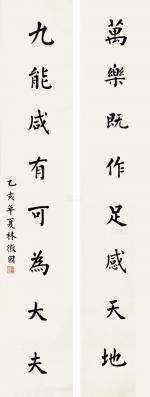 萬樂既作足感天地
九能咸有可為大夫
乙亥年夏林徵國